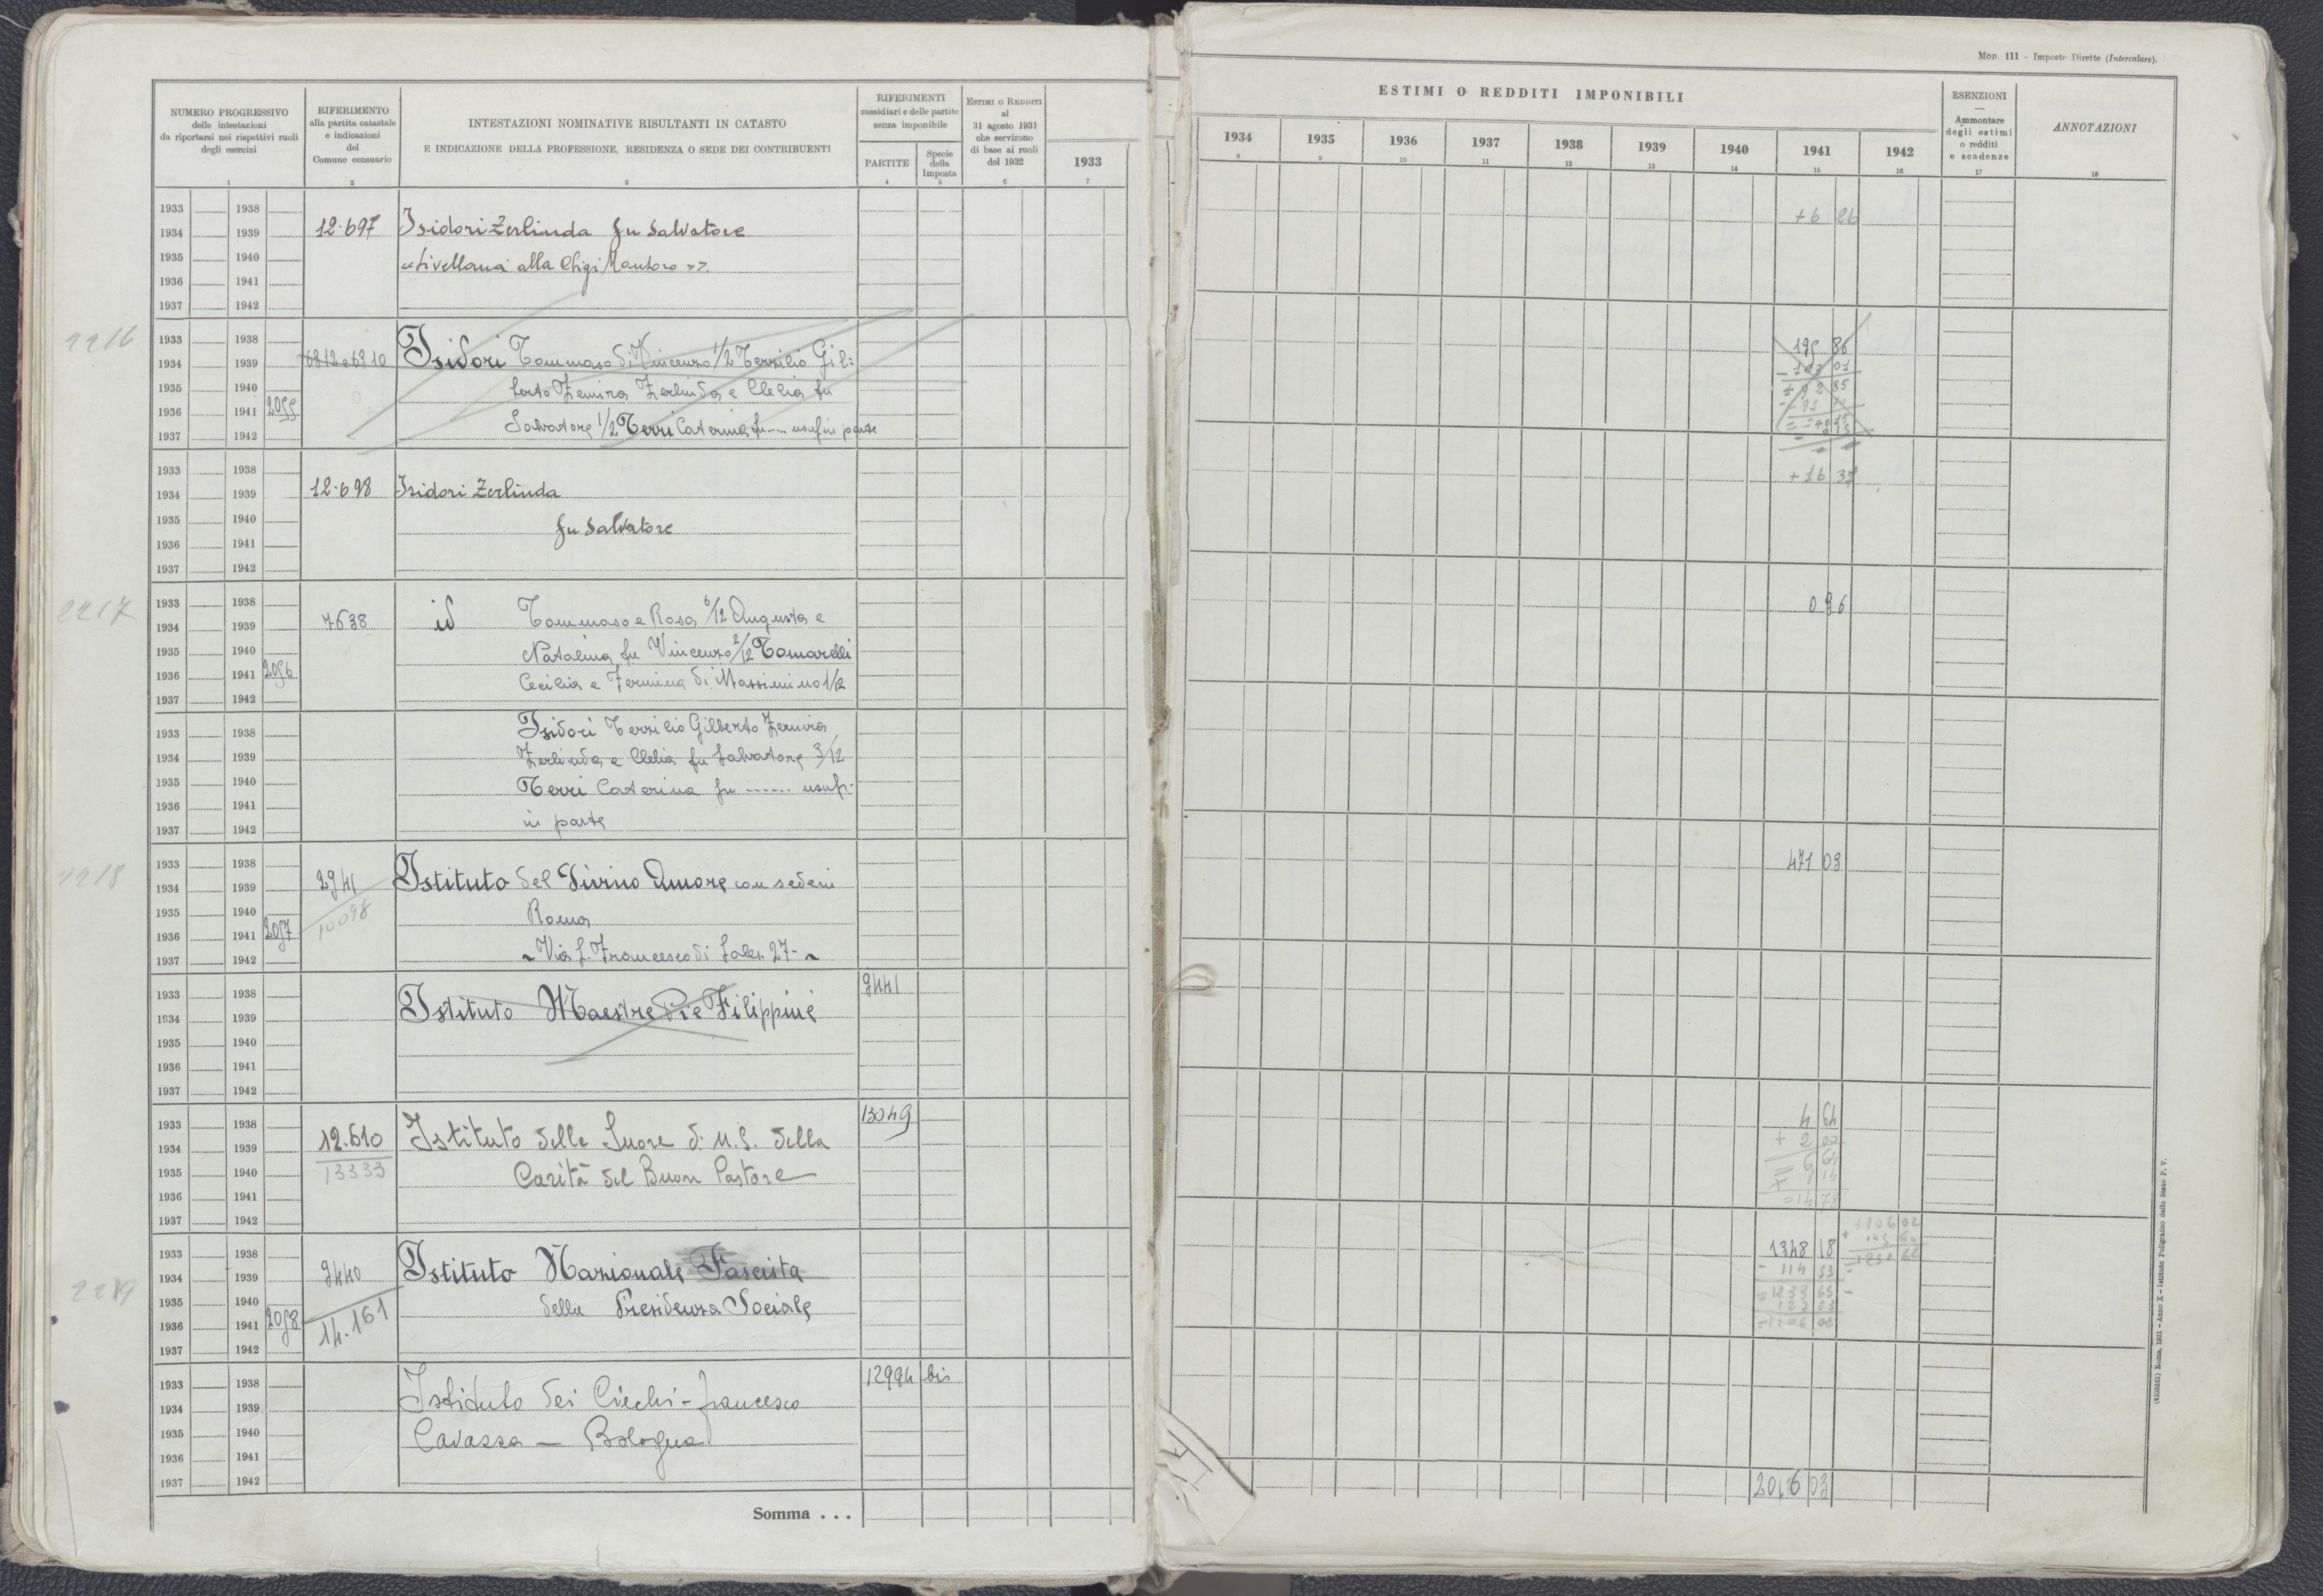 Mod. 111 - Imposte Dirette (Intercalare).
NUMERO PROGRESSIVO
delle intestazioni
da riportarsi nei rispettivi ruoli
degli esercizi
1
RIFERIMENTO
alla partita catastale
e indicazioni
del
Comune censuario
2
INTESTAZIONI NOMINATIVE RISULTANTI IN CATASTO
E INDICAZIONE DELLA PROFESSIONE, RESIDENZA O SEDE DEI CONTRIBUENTI
3
RIFERIMENTI
sussidiari e delle partite
senza imponibile
PARTITE
4
Specie
della
Imposta
5
ESTIMI O REDDITI
al
31 agosto 1931
che servirono
di base ai ruoli
del 1932
6
1933
7
ESTIMI O REDDITI IMPONIBILI
1934 1935 1936 1937 1938 1939 1940 1941 1942
8 9 10 11 12 13 14 15 16
ESENZIONI
—
Ammontare
degli estimi
o redditi
e scadenze
17
ANNOTAZIONI
18
1933 1938
1934 1939 12.697 Isidori Zerlinda fu Salvatore +6 26
1935 1940 "Livellaria alla Chigi
1936 1941
1937 1942
2216
1933 1938
1934 1939 6812 e 6810 Isidori Tommaso di Vincenzo 1/2 Terzilio Gil= 195 86
1935 1940 berto Zemira Zerlinda e Clelia fu
1936 1941 2095 Salvatore 1/2 Terri Caterina fu ---- usuf in parte
1937 1942
1933 1938
1934 1939 12.698 Isidori Zerlinda +16 37
1935 1940 fu Salvatore
1936 1941
1937 1942
2217
1933 1938
1934 1939 7638 id Tommaso e Rosa 6/12 Augusta e 0 96
1935 1940 Natalina fu Vincenzo 2/12 Tomarelli
1936 1941 2096 Cecilia e Fermina di Massimino 1/12
1937 1942
1933 1938 Isidori Terzilio Gilberto
1934 1939 Zerlinda e Clelia fu Salvatore 3/12
1935 1940 Terri Caterina fu ------ usuf.
1936 1941 in parte
1937 1942
2218
1933 1938
1934 1939 2941 Istituto del Divino Amore con sede in 471 03
1935 1940 10098 Roma
1936 1941 2097 Via S. Francesco di Sales 27
1937 1942
1933 1938 9441
1934 1939 Istituto Maestre Pie Filippine
1935 1940
1936 1941
1937 1942
1933 1938 13049
1934 1939 12.610 Istituto delle Suore di N.S. della 4 64
1935 1940 13333 Carità del Buon Pastore + 2 00
1936 1941 = 6 64
1937 1942 = 14 78
2219
1933 1938
1934 1939 9440 Istituto Nazionale Fascista 1348 18
1935 1940 della Previdenza Sociale - 114 53
1936 1941 2098 14.161 = 1233 65
1937 1942 = 1106 02
1106 02
1933 1938 12994 bis
1934 1939 Istituto dei Ciechi - Francesco
1935 1940 Cavazza - Bologna
1936 1941
1937 1942
Somma . . . 2016 03
(4103531) Roma, 1931 - Anno X - Istituto Poligrafico dello Stato P. V.